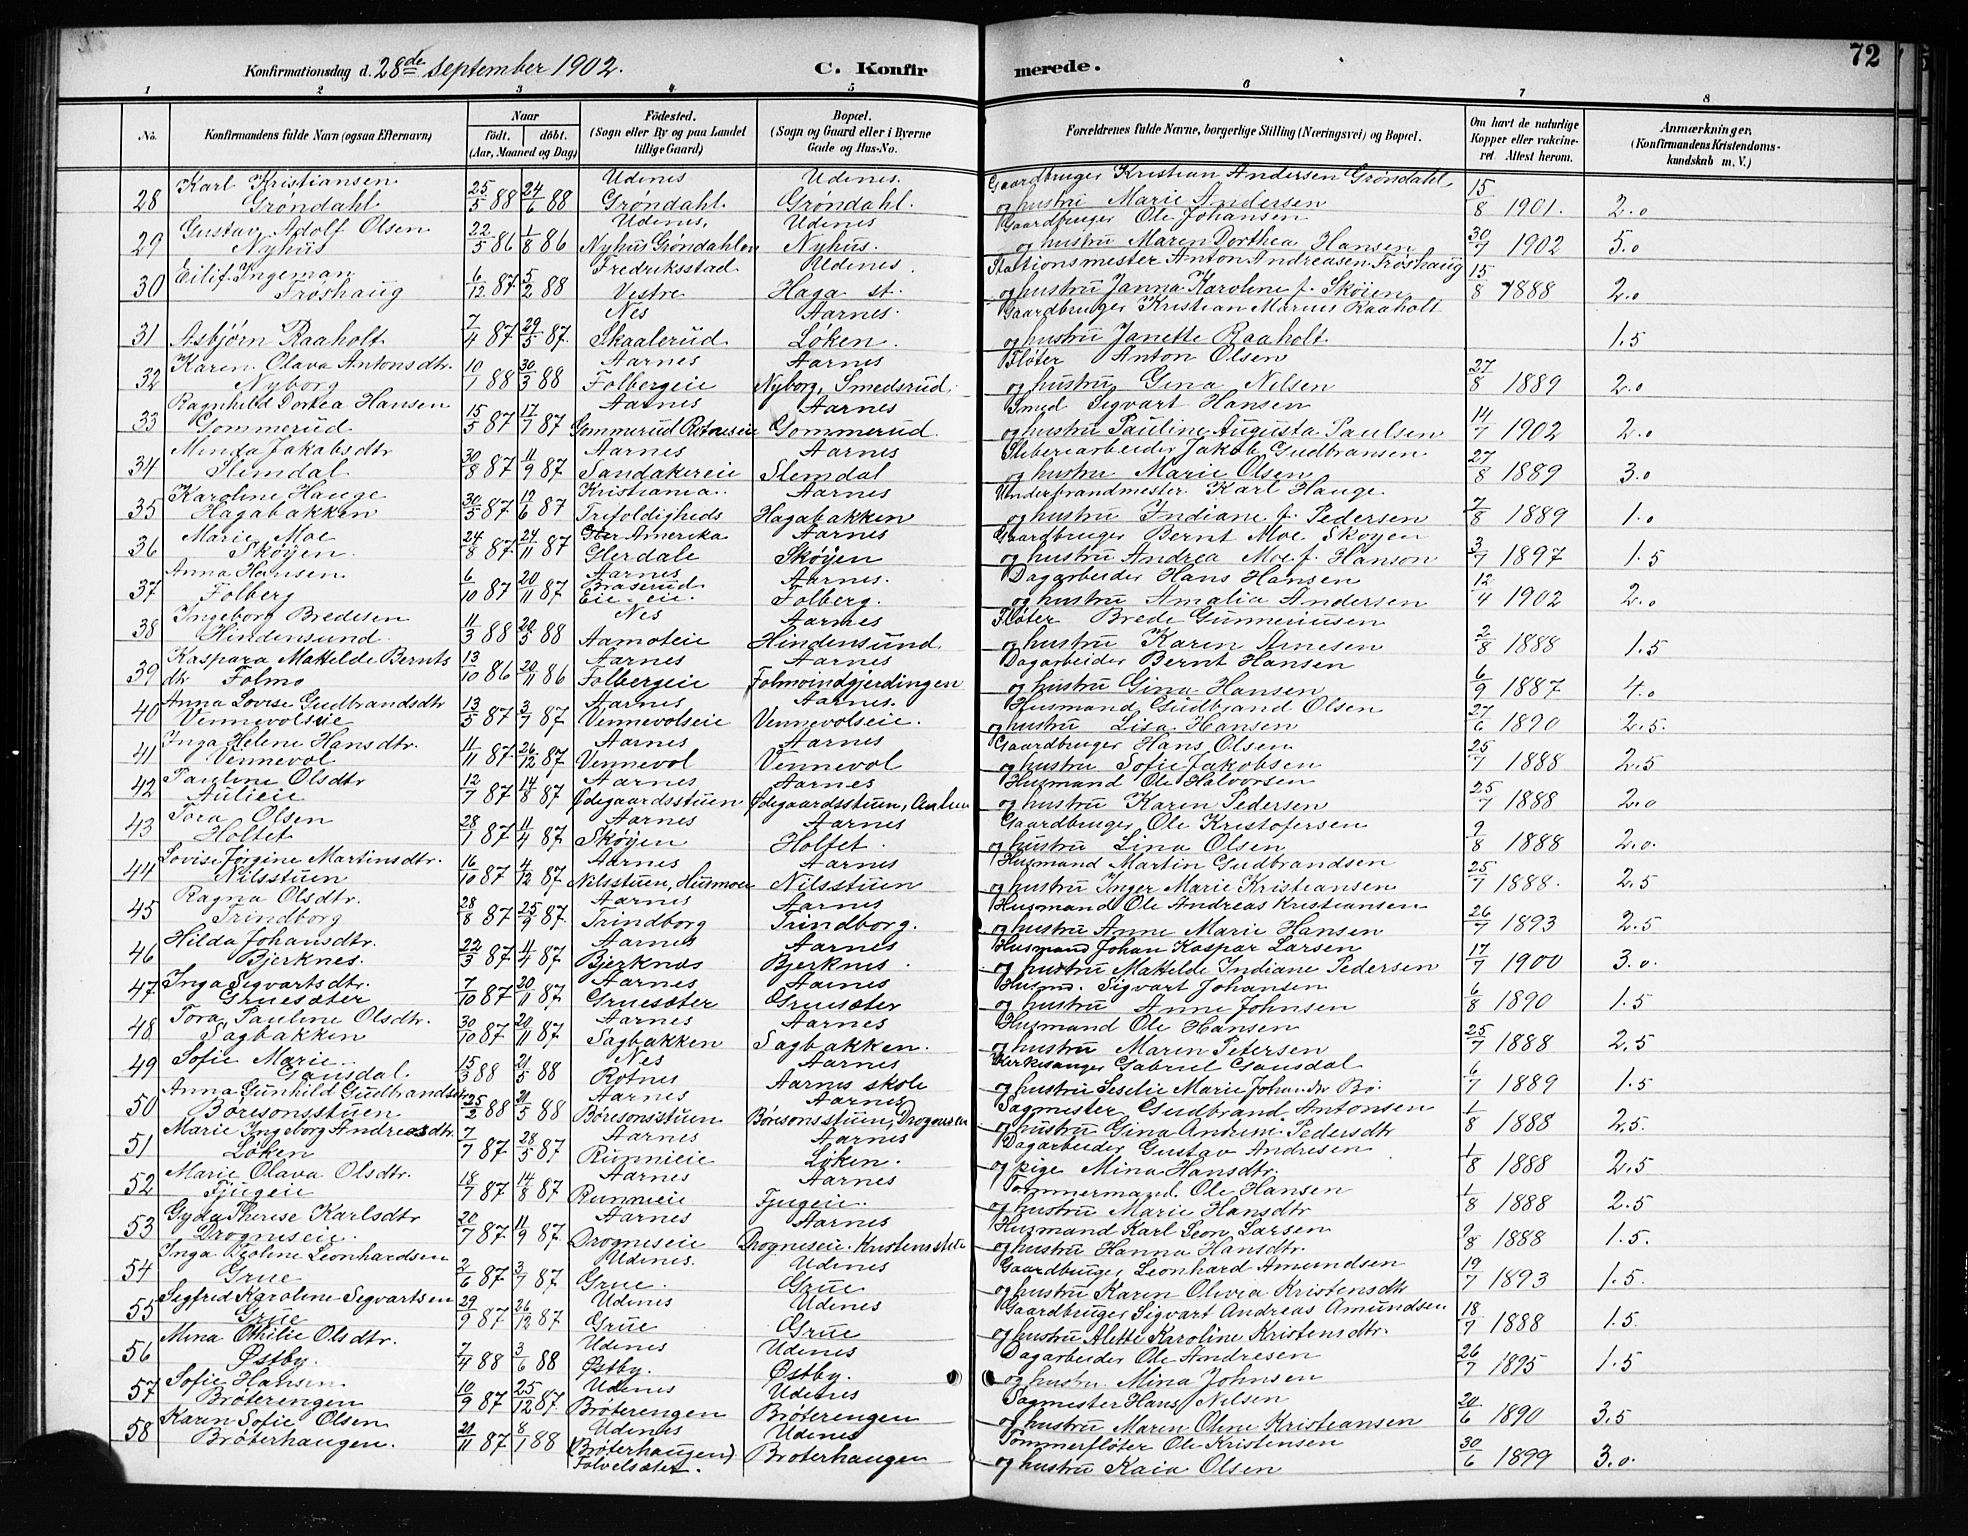 72
Konfirmationsdag d. 28de September 1902.
C. Konfirmerede.
1 2 3 4 5 6 7 8
No.
Konfirmandens fulde Navn (ogsaa Efternavn)
Naar
födt. döbt.
(Aar, Maaned og Dag)
Födested.
(Sogn eller By og paa Landet
tillige Gaard)
Bopæl.
(Sogn og Gaard eller i Byerne
Gade og Hus-No.
Forældrenes fulde Navne, borgerlige Stilling (Næringsvei) og Bopæl.
Om havt de naturlige
Kopper eller vakcine-
ret. Attest herom.
Anmærkninger.
(Konfirmandens Kristendoms-
kundskab m. V.)
Karl Kristiansen Udenes Udenes. Gaardbruger Kristian Andersen Grøndahl
28 Grøndahl 25/5 88 24/6 88 Grøndahl. Grøndahl. og hustru Marie Andersen 15/8 1901. 2.0
Gustav Adolf Olsen Udenes, Udenes Gaardbruger Ole Johansen
29 Nyhus 22/5 86 1/8 86 Nyhus Grøndahl Nyhus. og hustru Maren Dorthea Hansen 30/7 1902 5.0
Eilif Ingeman Fredriksstad Udenes. Stationsmester Anton Andreasen Frøshaug
30 Frøshaug 6/12 87 5/2 88 Vestre Haga st. og hustru Janna Karoline f. Skøien 15/8 1888 2.0
Nes Aarnes. Gaardbruger Kristian Marius Raaholt
31 Asbjørn Raaholt 7/4 87 29/5 87. Skaalerud Løken. og hustru Janette Raaholt. 1.5
Karen Olava Antonsdtr. Aarnes Aarnes Fløter Anton Olsen
32 Nyborg 10/1 88 30/3 88 Folbergeie Nyborg, Smedsrud. og hustru Gina Nilsen 27/8 1889 2.0
Ragnhild Dorkea Hansen Aarnes Aarnes Smed Sigvart Hansen
33 Gommerud 15/5 87 17/7 87 Gommerud Rotneseie Gommerud. og hustru Pauline Augusta Paulsen 14/7 1902 2.0
Minda Jakobsdtr Aarnes Aarnes Sliberiarbeider Jakob Gudbransen
34 Slemdal. 30/8 87 11/9 87 Sandakereie Slemdal og hustru Marie Olsen 27/8 1889 3.0
Karoline Hauge Kristiania. Aarnes Underbrandmester Karl Hauge
35 Hagabakken 30/5 87 12/6 87 Trefoldigheds Hagabakken og hustru Indiane f. Pedersen 7/8 1889 1.0
Marie Moe Amerika Aarnes Gaardbruger Bernt Moe Skøyen
36 Skøyen. 24/8 87. 24/11 87 Glerdale Skøyen og hustru Andrea Moe f. Hanson 3/7 1897 1.5
Anna Hansen Aarnes Aarnes. Dagarbeider Hans Hansen
37 Folberg 6/10 87 20/11 87 Braserud Eie eie. Folberg. og hustru Amalia Andersen 12/4 1902 2.0
Ingeborg Bredesen Nes Aarnes Fløter Brede
38 Hindensund. 11/3 88 20/5 88 Aamoteie Hindensund og hustru Karen Arnesen 2/8 1888 1.5
Kaspara Mathilde Bernts Aarnes Aarnes Dagarbeider Bernt Hansen
39 dtr Folmo 13/10 86 20/11 86 Folbergeie Folmoindgjerdingen og hustru Gina Hansen 6/9 1887 4.0
Anna Lovise Gudbrandsdtr Aarnes Aarnes. Husmand Gudbrand Olsen
40 Vennevolseie 13/5 87 3/7 87 Vennevolseie Vennevolseie. og hustru Lisa Hansen 27/6 1890 2.5.
Inga Helene Hansdtr. Aarnes Aarnes Gaardbruger Hans Olsen
41 Vennevol 11/11 87. 26/12 87 Vennevol Vennevol og hustru Sofie Jakobsen 25/7 1888 2.5
Pauline Olsdtr Aarnes Aarnes Husmand Ole Halvorsen
42 Aulieie 12/7 87 14/8 87 Ødegaardsstuen Ødegaardsstuen, og hustru Karen Pedersen 25/7 1888 2.0
Tora Olsen Aarnes Aarnes Gaardbruger Ole Kristofersen
43 Holtet 28/1 87 11/4 87. Skøyen Holtet. og hustru Lina Olsen 9/8 1888 2.0.
Lovise Jørgine Martinsdtr. Aarnes Aarnes Husmand Martin Gudbrandsen
44 Nilsstuen 16/10 87 4/12 87. Nilsstuen, Husmoeie Nilsstuen og hustru Inger Marie Kristiansen 25/7 1888. 2.5
Ragna Olsdtr. Aarnes Aarnes Husmand Ole Andreas Kristiansen
45 Trindborg 28/8 87 25/9 87. Trindborg Trindborg. og hustru Anne Marie Hansen 26/7 1893 2.5
Hilda Johansdtr. Aarnes Aarnes Husmand Johan Kaspar Larsen
46 Bjerknes. 22/3 87 4/4 87 Bjerknes Bjerknes. og hustru Mathilde Indiane Pedersen 17/7 1900 3.0.
Inga Sigvartsdtr. Aarnes Aarnes Husmd. Sigvart Johansen
47 Gruesæter 7/10 87 20/11 87 Gruesæter Gruesæter og hustru Anne Johnsen 6/8 1890 1.5
Tora Pauline Olsdtr. Aarnes Aarnes Husmand Ole Hansen
48 Sagbakken 30/10 87 20/11 87 Sagbakken Sagbakken. og hustru Maren Petersen 25/7 1888 2.5
Sofie Marie Nes Aarnes Kirkesanger Gabriel Gausdal
49 Gausdal. 15/3 88 21/5 88 Rotnes Aarnes skole og hustru Seselie Marie Johansdtr Bø. 6/7 1889 1.5
Anna Gunhild Gudbrandsen Aarnes Aarnes Sagmester Gudbrand Antonsen
50 Børesonsstuen 25/2 88 21/5 88 Børesonsstuen Børesonsstuen, Drognesen og hustru Gina Andrine Pedersdtr 1/8 1888 2.5.
Marie Ingeborg Andreasdtr. Aarnes Aarnes Dagarbeider Gustav Andresen
51 Løken 7/7 87. 28/5 87 Runnieie Løken. og pige Mina Hansdtr. 1/8 1888 2.5
Marie Olava Olsdtr. Aarnes Aarnes Tømmermand Ole Hansen
52 Fjugeie 18/7 87 14/8 87 Runnieie Fjugeie. og hustru Marie Hansdtr 1/8 1888 2.5
Gyda Therese Karlsdtr Aarnes Aarnes Husmand Karl Leon Larsen
53 Drogneseie. 20/7 87. 11/9 87. Drogneseie Drogneseie. og hustru Hanna Hansdtr. 9/8 1888 1.5.
Inga Leonhardsen Udenes. Udenes Gaardbruger Leonhard Amundsen
54 Grue 2/6 87 3/7 87 Grue. Grue og hustru Karen Olivia Kristensdtr 19/7 1893 1.5.
Segfred Karoline Sigvartsen Udenes Udenes Gaardbruger Sigvart Andreas Amundsen
55 Grue 29/9 87 26/12 87 Grue Grue og hustru Alette Karoline Kristensdtr. 18/7 1888 1.5.
Mina Othilie Olsdtr. Udenes Udenes Dagarbeider Ole Andresen
56 Østby. 7/4 88 3/6 88 Østby. Østby. og hustru Mina Johnsen 26/7 1895 1.5
Sofie Hansen Udenes Udenes Sagmester Hans Nilsen
57 Brøterengen 10/9 87 25/12 87 Brøterengen Brøterengen og hustru Maren Oline Kristiansen 20/6 1890 3.5
Karen Sofie Olsen Udenes Udenes Tømmerfløter Ole Kristensen
58 Brøterhaugen. 21/11 87 8/1 88 (Brøterhaugen) Brøterhaugen og hustru Kaia Olsen 30/6 1899 3.0.
Tolvelsæter.